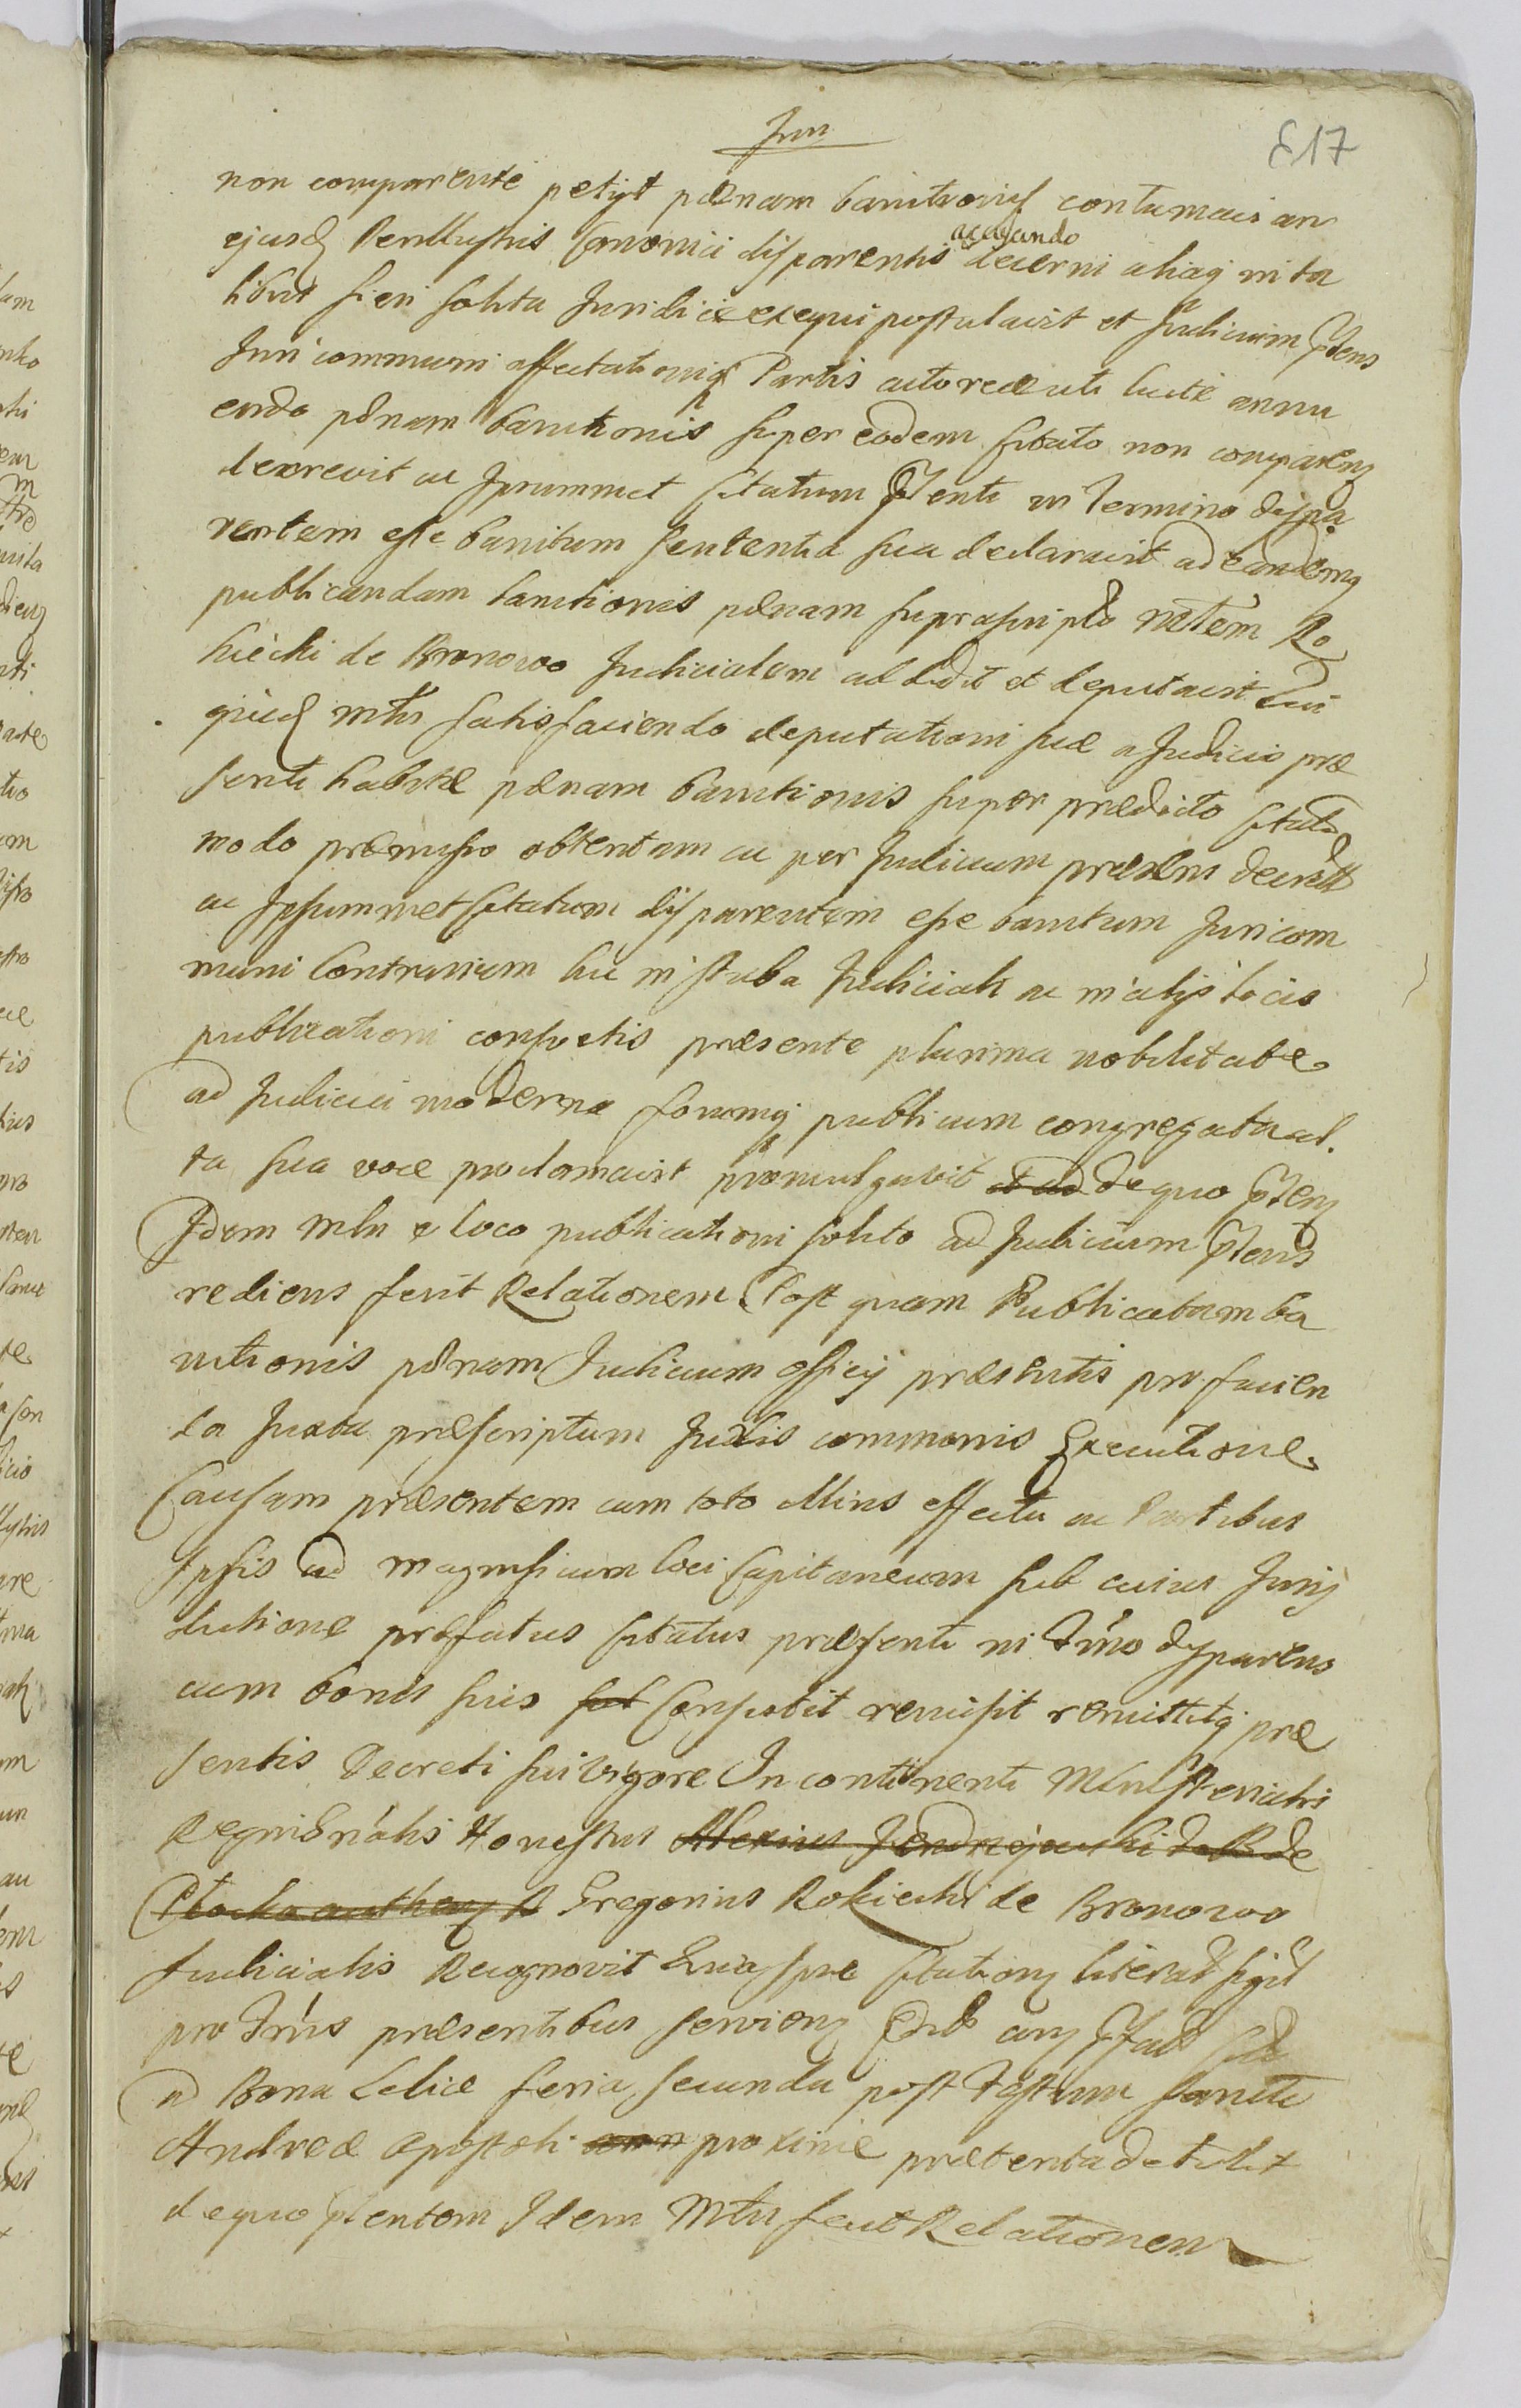 517
non comparente petijt pœnam banitionis contumacia
ejusd Perillustris Canonici disparentis acusando decerni aliaq in ta
libus fieri solita Juridice exequi postulavit et Judicium ptens
Juri communi affectationiq Partis actoreæ uti licitè annu
endo pœnam banitionis super eodem citato non comparen
decrevit ac Ipsummet Citatum ptenti in Termino dispa
rentem esse banitum sententia sua declaravit ad eandemq
publicandam banitionis pœnam suprascripto Ro
kiecki de Bronowo Judicialem addidit et deputavit Qui
quid mtlis satisfaciendo deputationi suæ a Judicio præ
senti habitæ pœnam banitionis super prædicto Citato
modo præmisso obtentam ac per Judicium præsens
ac Ipsummet Citatum disparentem esse banitum Juri com
muni Contrarium hic in stuba Judiciali ac in alijs locis
publicationi consvetis præsente plurima nobilitate
ad Judicia moderna forumq publicum congregata al
ta sua voce proclamavit promulgavit et ad de quo pten
Idem mln e loco publicationi solito ad Judicium ptens
rediens fecit Relationem Post quam Publicatam ba
nitionis pœnam Judicium officij præsentis pro facien
da Juxta præscriptum Juris communis Executione
Causam præsentem cum toto Illius effectu ac Partibus
Ipsis ad magnificum loci Capitaneum sub cuius Juris
dictione præfatus Citatus præsenti in Tmo disparens
cum bonis suis sub Consistit remisit remittitq præ
sentis Decreti sui vigore In continenti Ministerialis
Regni Gnalis Honestus Alexius Jendrzejewski de
Gregorius Rokiecki de Bronowo
Judicialis Recognovit Quia Ipse Citationem
pro Tmis præsentibus servien
ad Bona Lelice feria secunda post Festum Sancti
Andreæ Apostoli proxime præterita detulit
de quo ptentem Idem Mln fecit Relationem